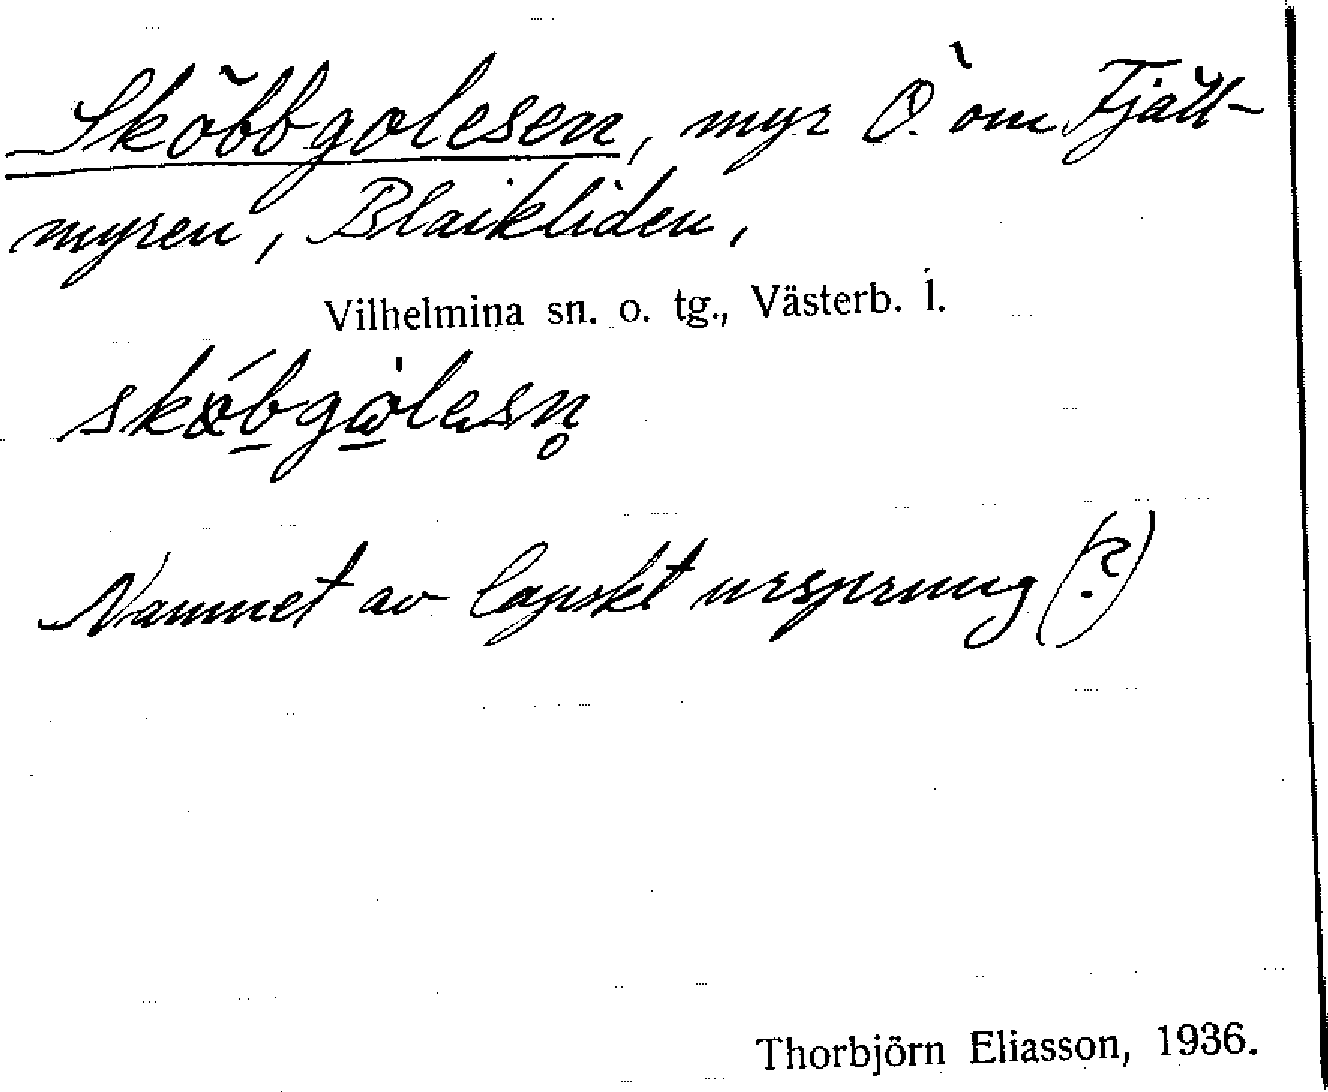 Sköbbgolesen, myr Ö. om Fjäll-
myren, Blaikliden,
Vilhelmina sn. o. tg., Västerb. l.
Namnet av lapskt ursprung (?)
Thorbjörn Eliasson, 1936.